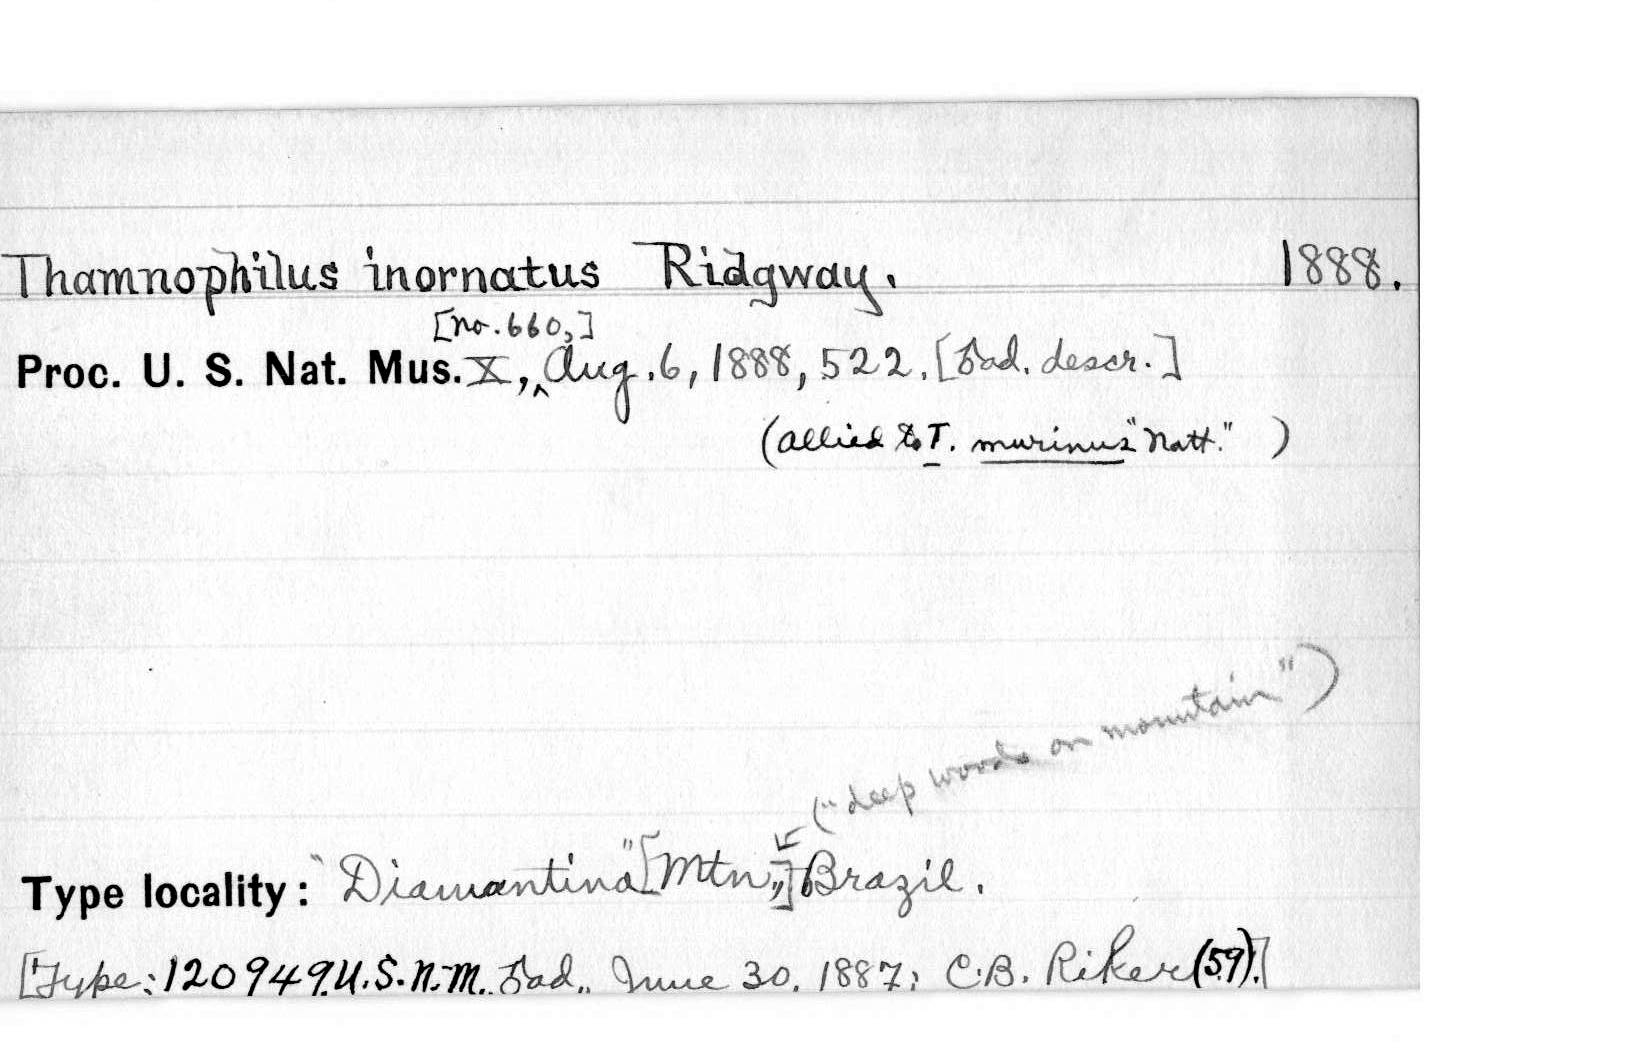 Thamnophilus inornatus Ridgway. 1888.
[no. 660,]
Proc. U. S. Nat. Mus. X, ^ Aug. 6, 1888, 522. [♂ad. descr.]
(allied to T. murinus "Natt." )
("deep woods on mountain")
Type locality: "Diamantina" [Mtn,] Brazil.
[Type: 120949, U.S.N.M. ♂ad., June 30, 1887; C.B. Riker (59).]